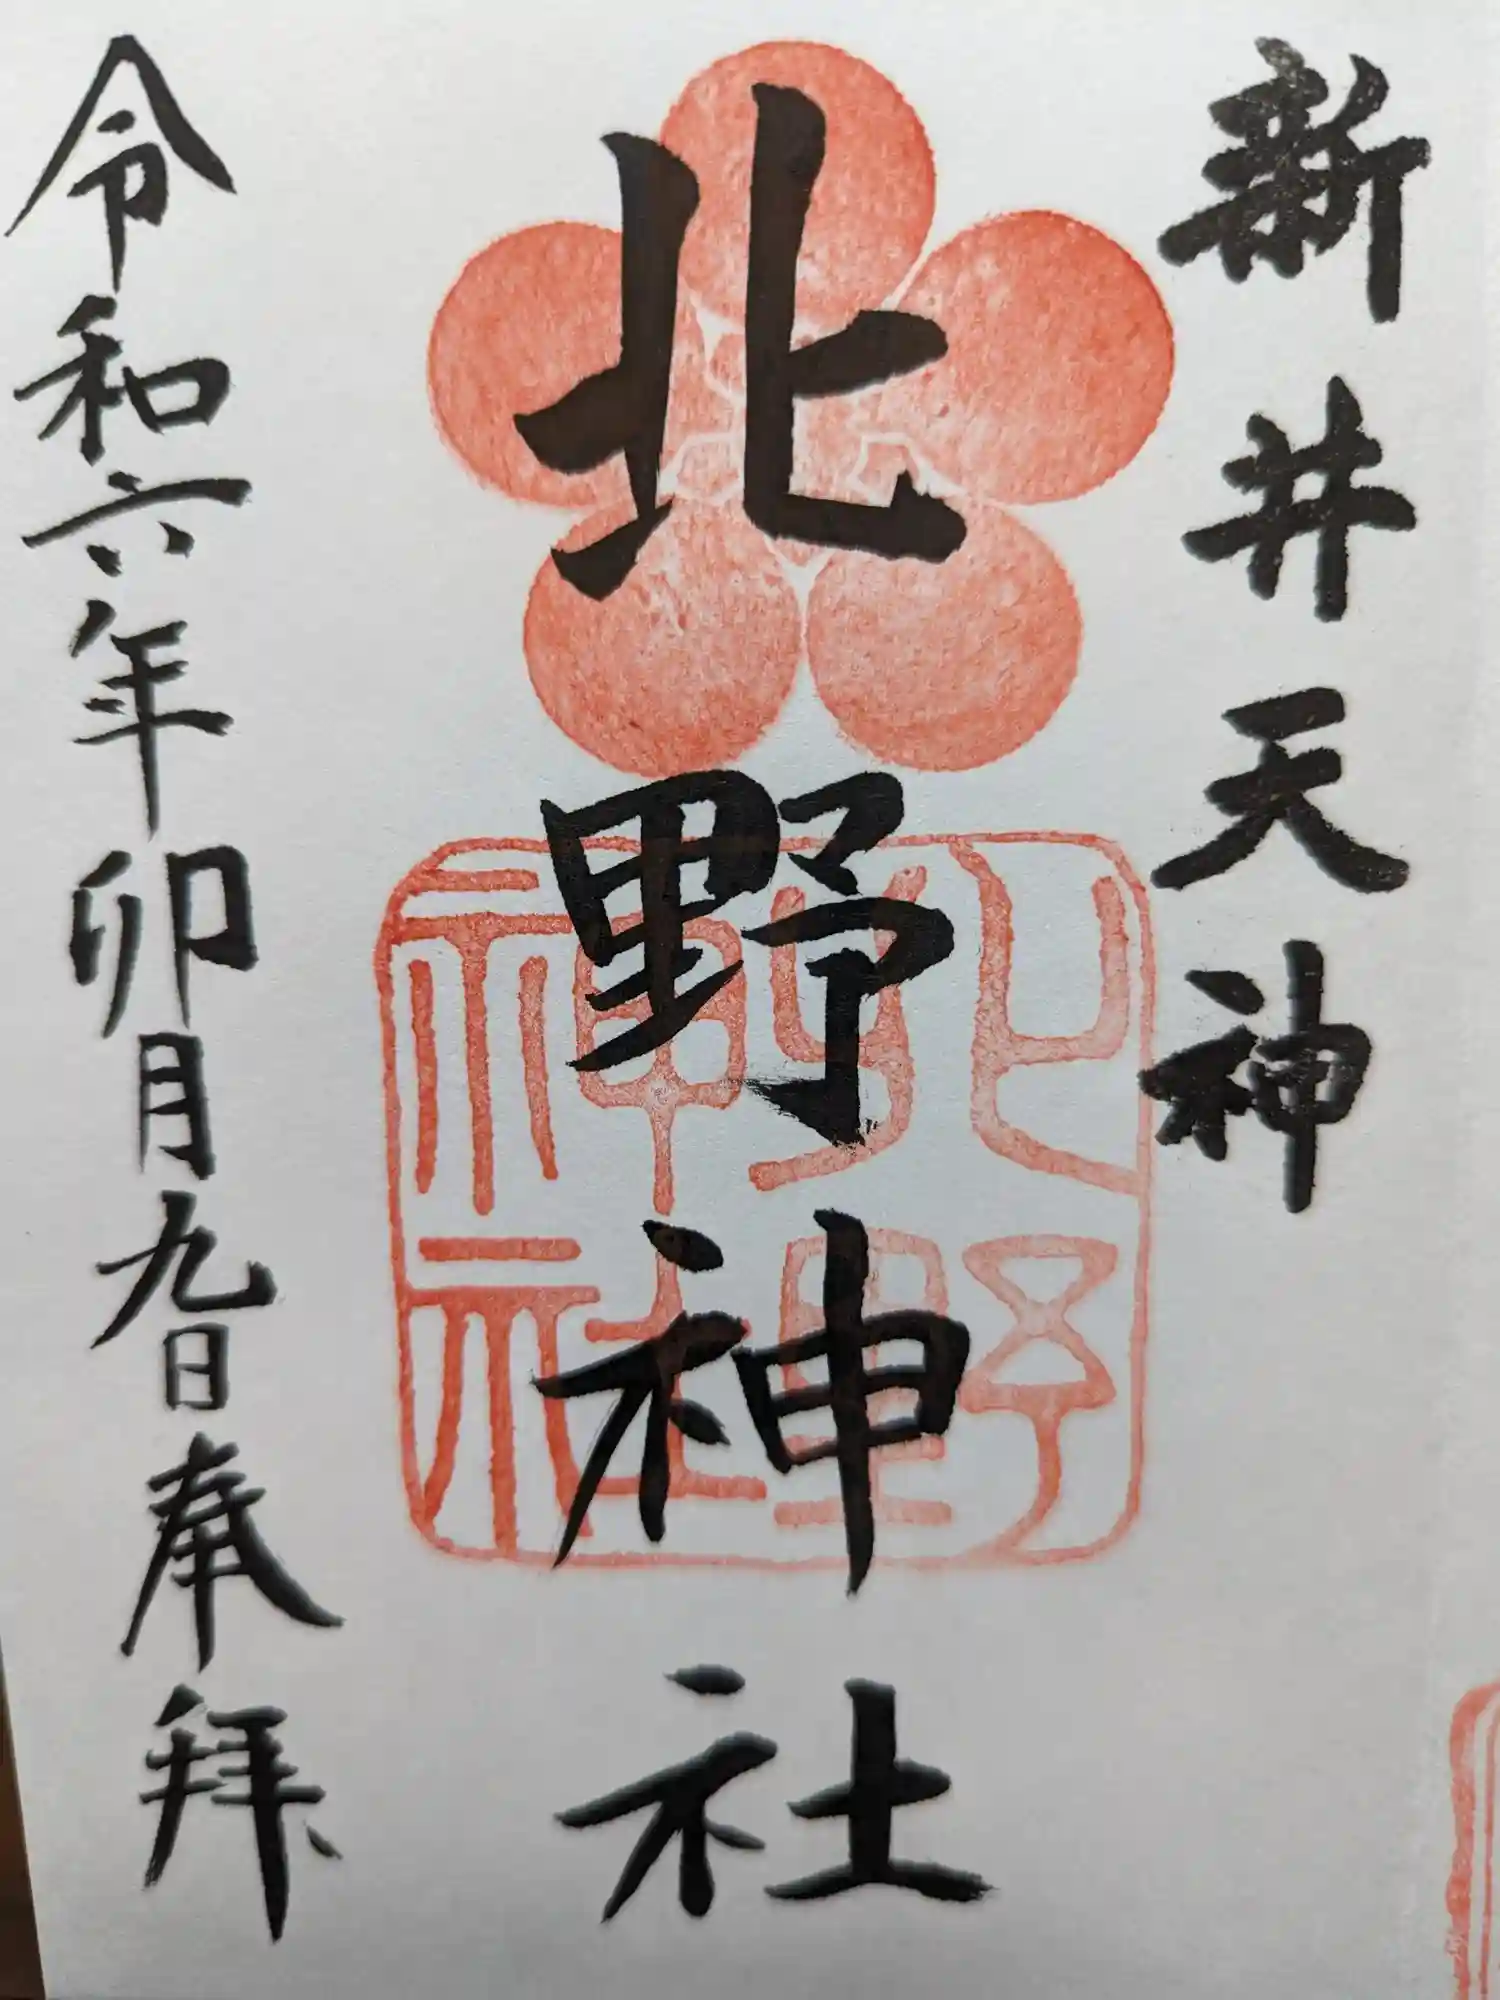 新井天神
北野神社
北野神社
令和六年卯月九日奉拜